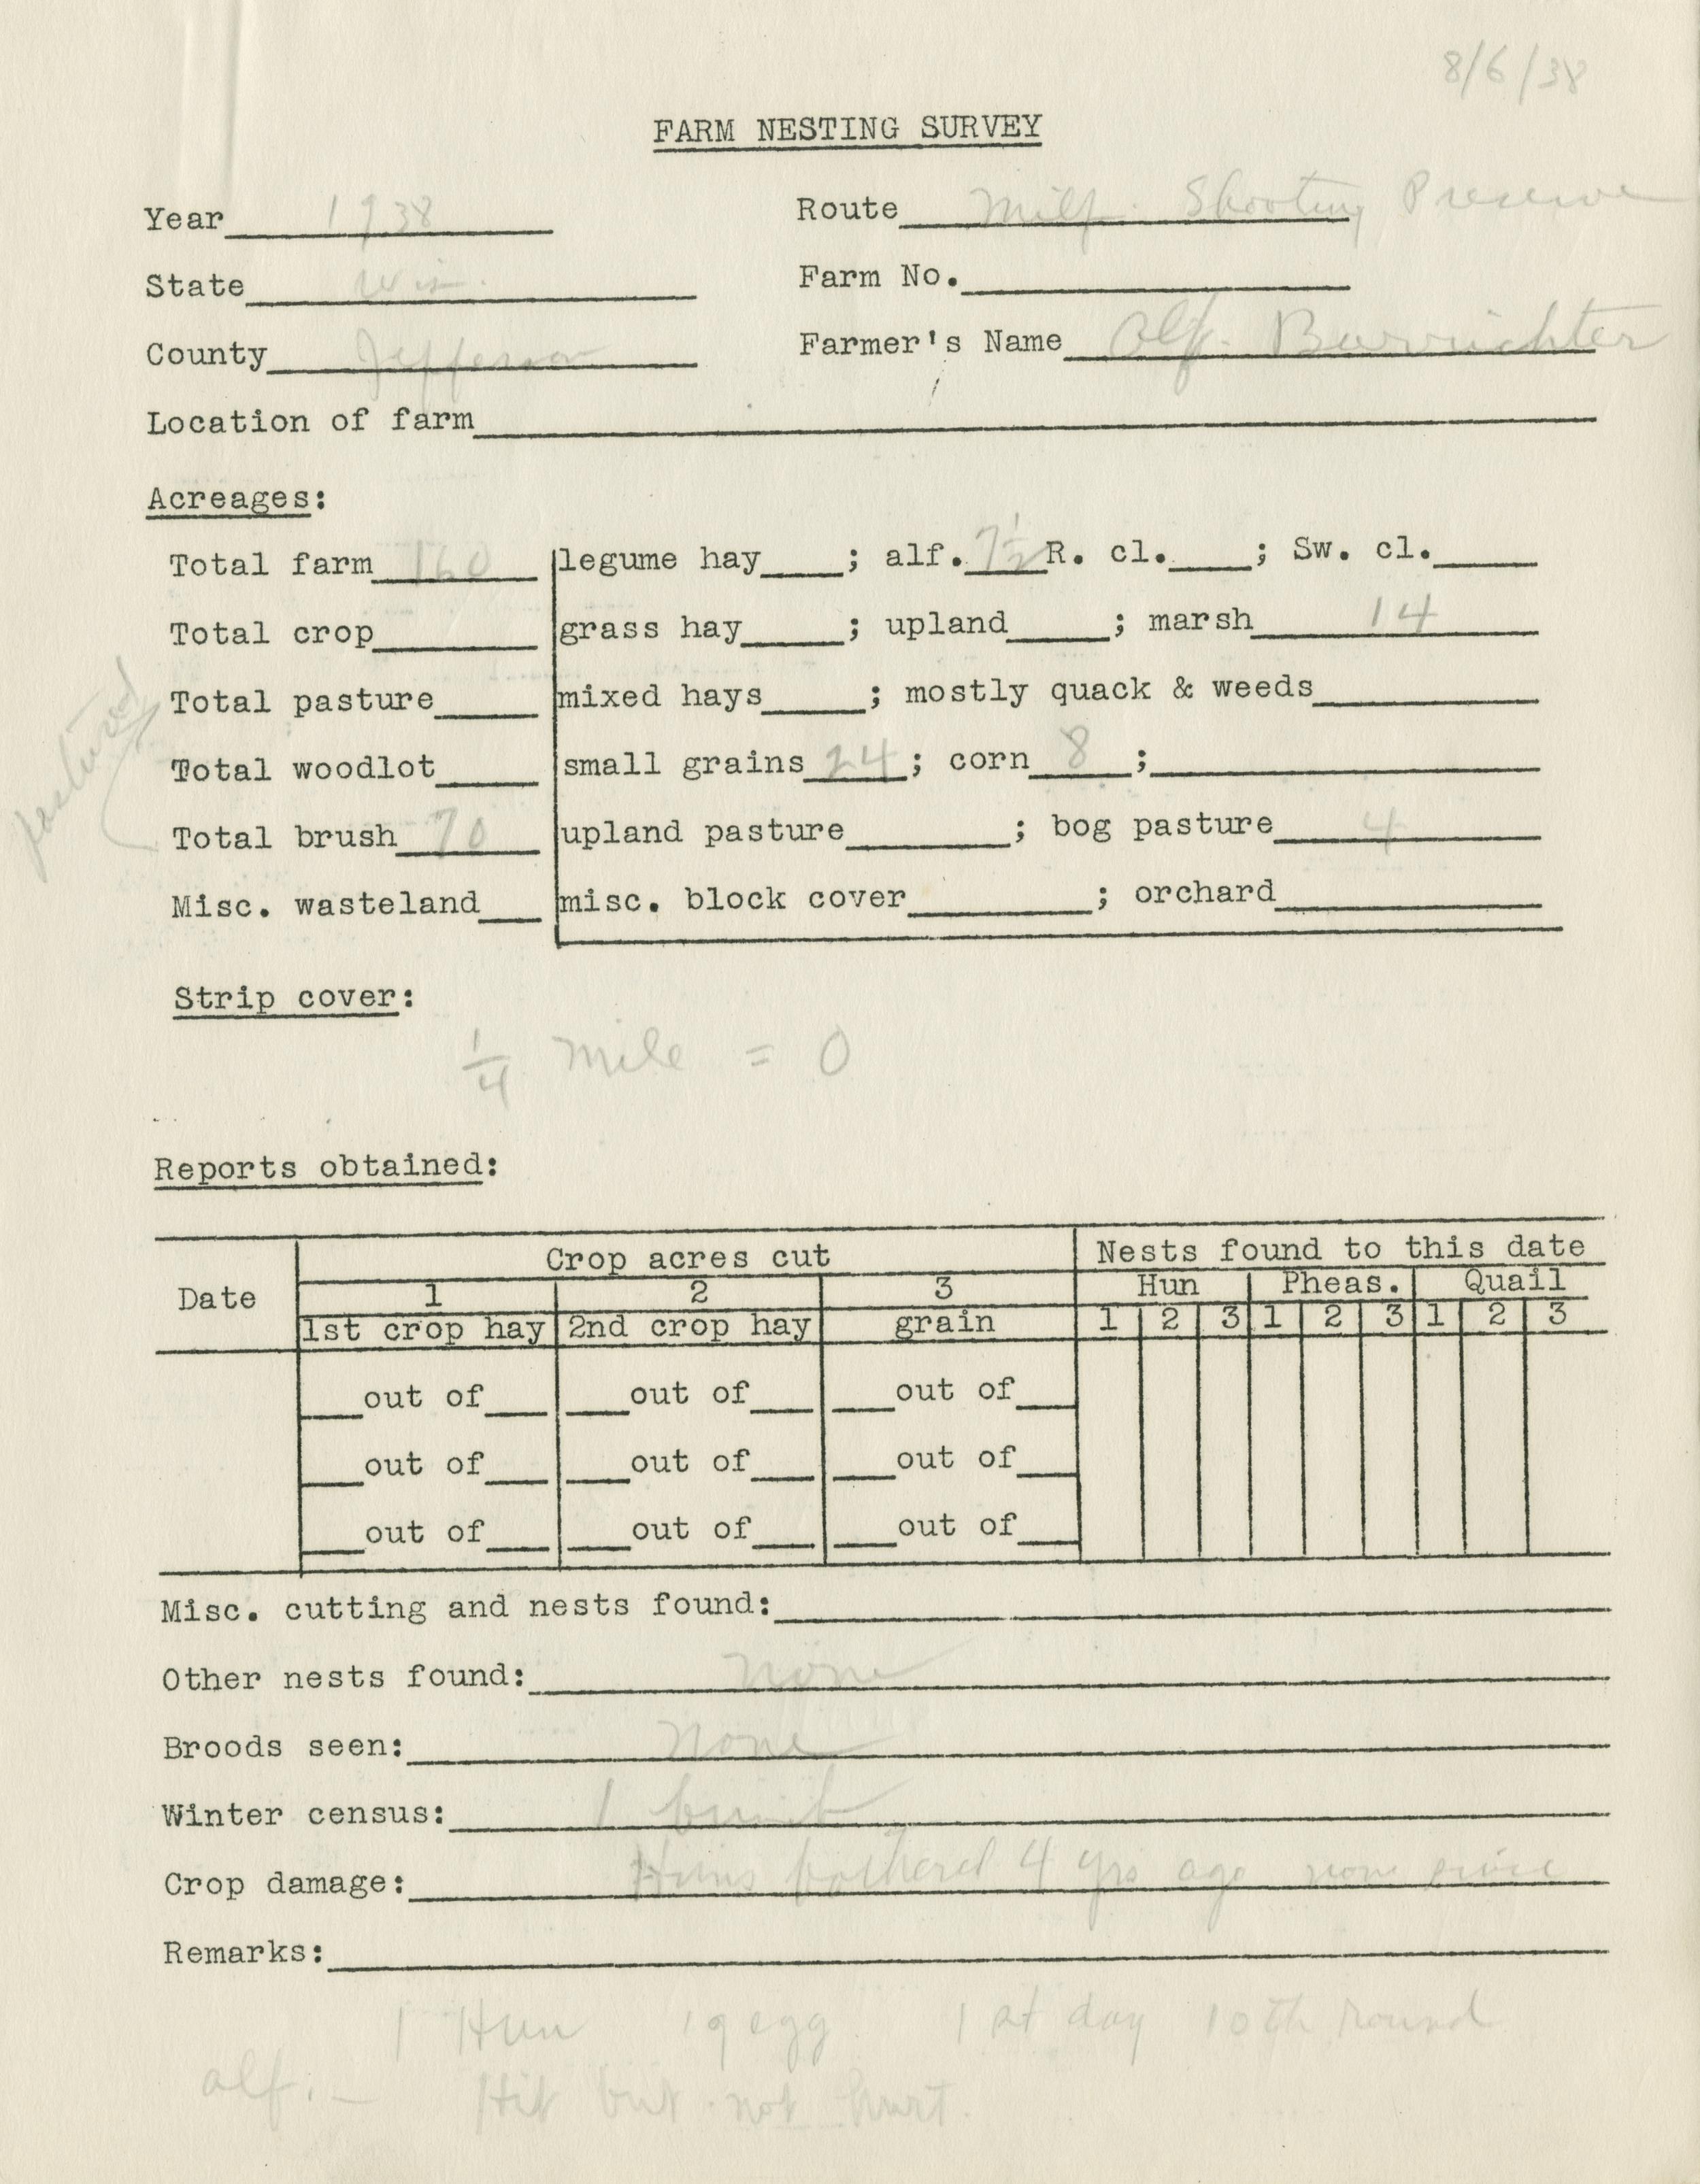 8/6/38
FARM NESTING SURVEY
Year 1938 Route Milf. Shooting Preserve
State Wis. Farm No.
County Jefferson Farmer's Name Alf.
Location of farm
Acreages:
Total farm 160 legume hay ; alf. 7½ R. cl. ; Sw. cl.
Total crop grass hay ; upland ; marsh 14
Total pasture mixed hays ; mostly quack & weeds
pastured
Total woodlot small grains 24 ; corn 8 ;
Total brush 70 upland pasture ; bog pasture 4
Misc. wasteland misc. block cover ; orchard
Strip cover:
¼ mile = 0
Reports obtained:
Date Crop acres cut Nests found to this date
1 2 3 Hun Pheas. Quail
1st crop hay 2nd crop hay grain 1 2 3 1 2 3 1 2 3
out of out of out of
out of out of out of
out of out of out of
Misc. cutting and nests found:
Other nests found: none
Broods seen: none
Winter census: 1
Crop damage: Huns bothered 4 yrs ago none since
Remarks:
1 Hun 19 egg 1st day 10th round
alf. — Hit but not hurt.